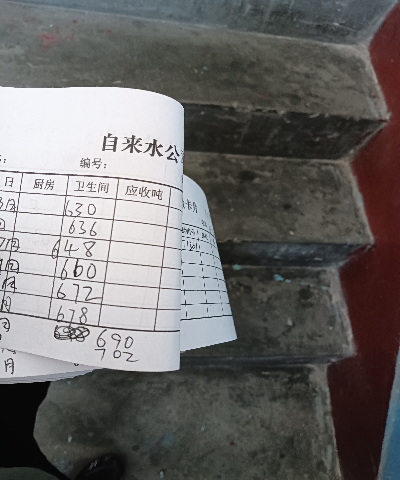 自来水公
编号:
日 厨房 卫生间 应收吨
月 630
636
648
660
672
月 678
690
702
月